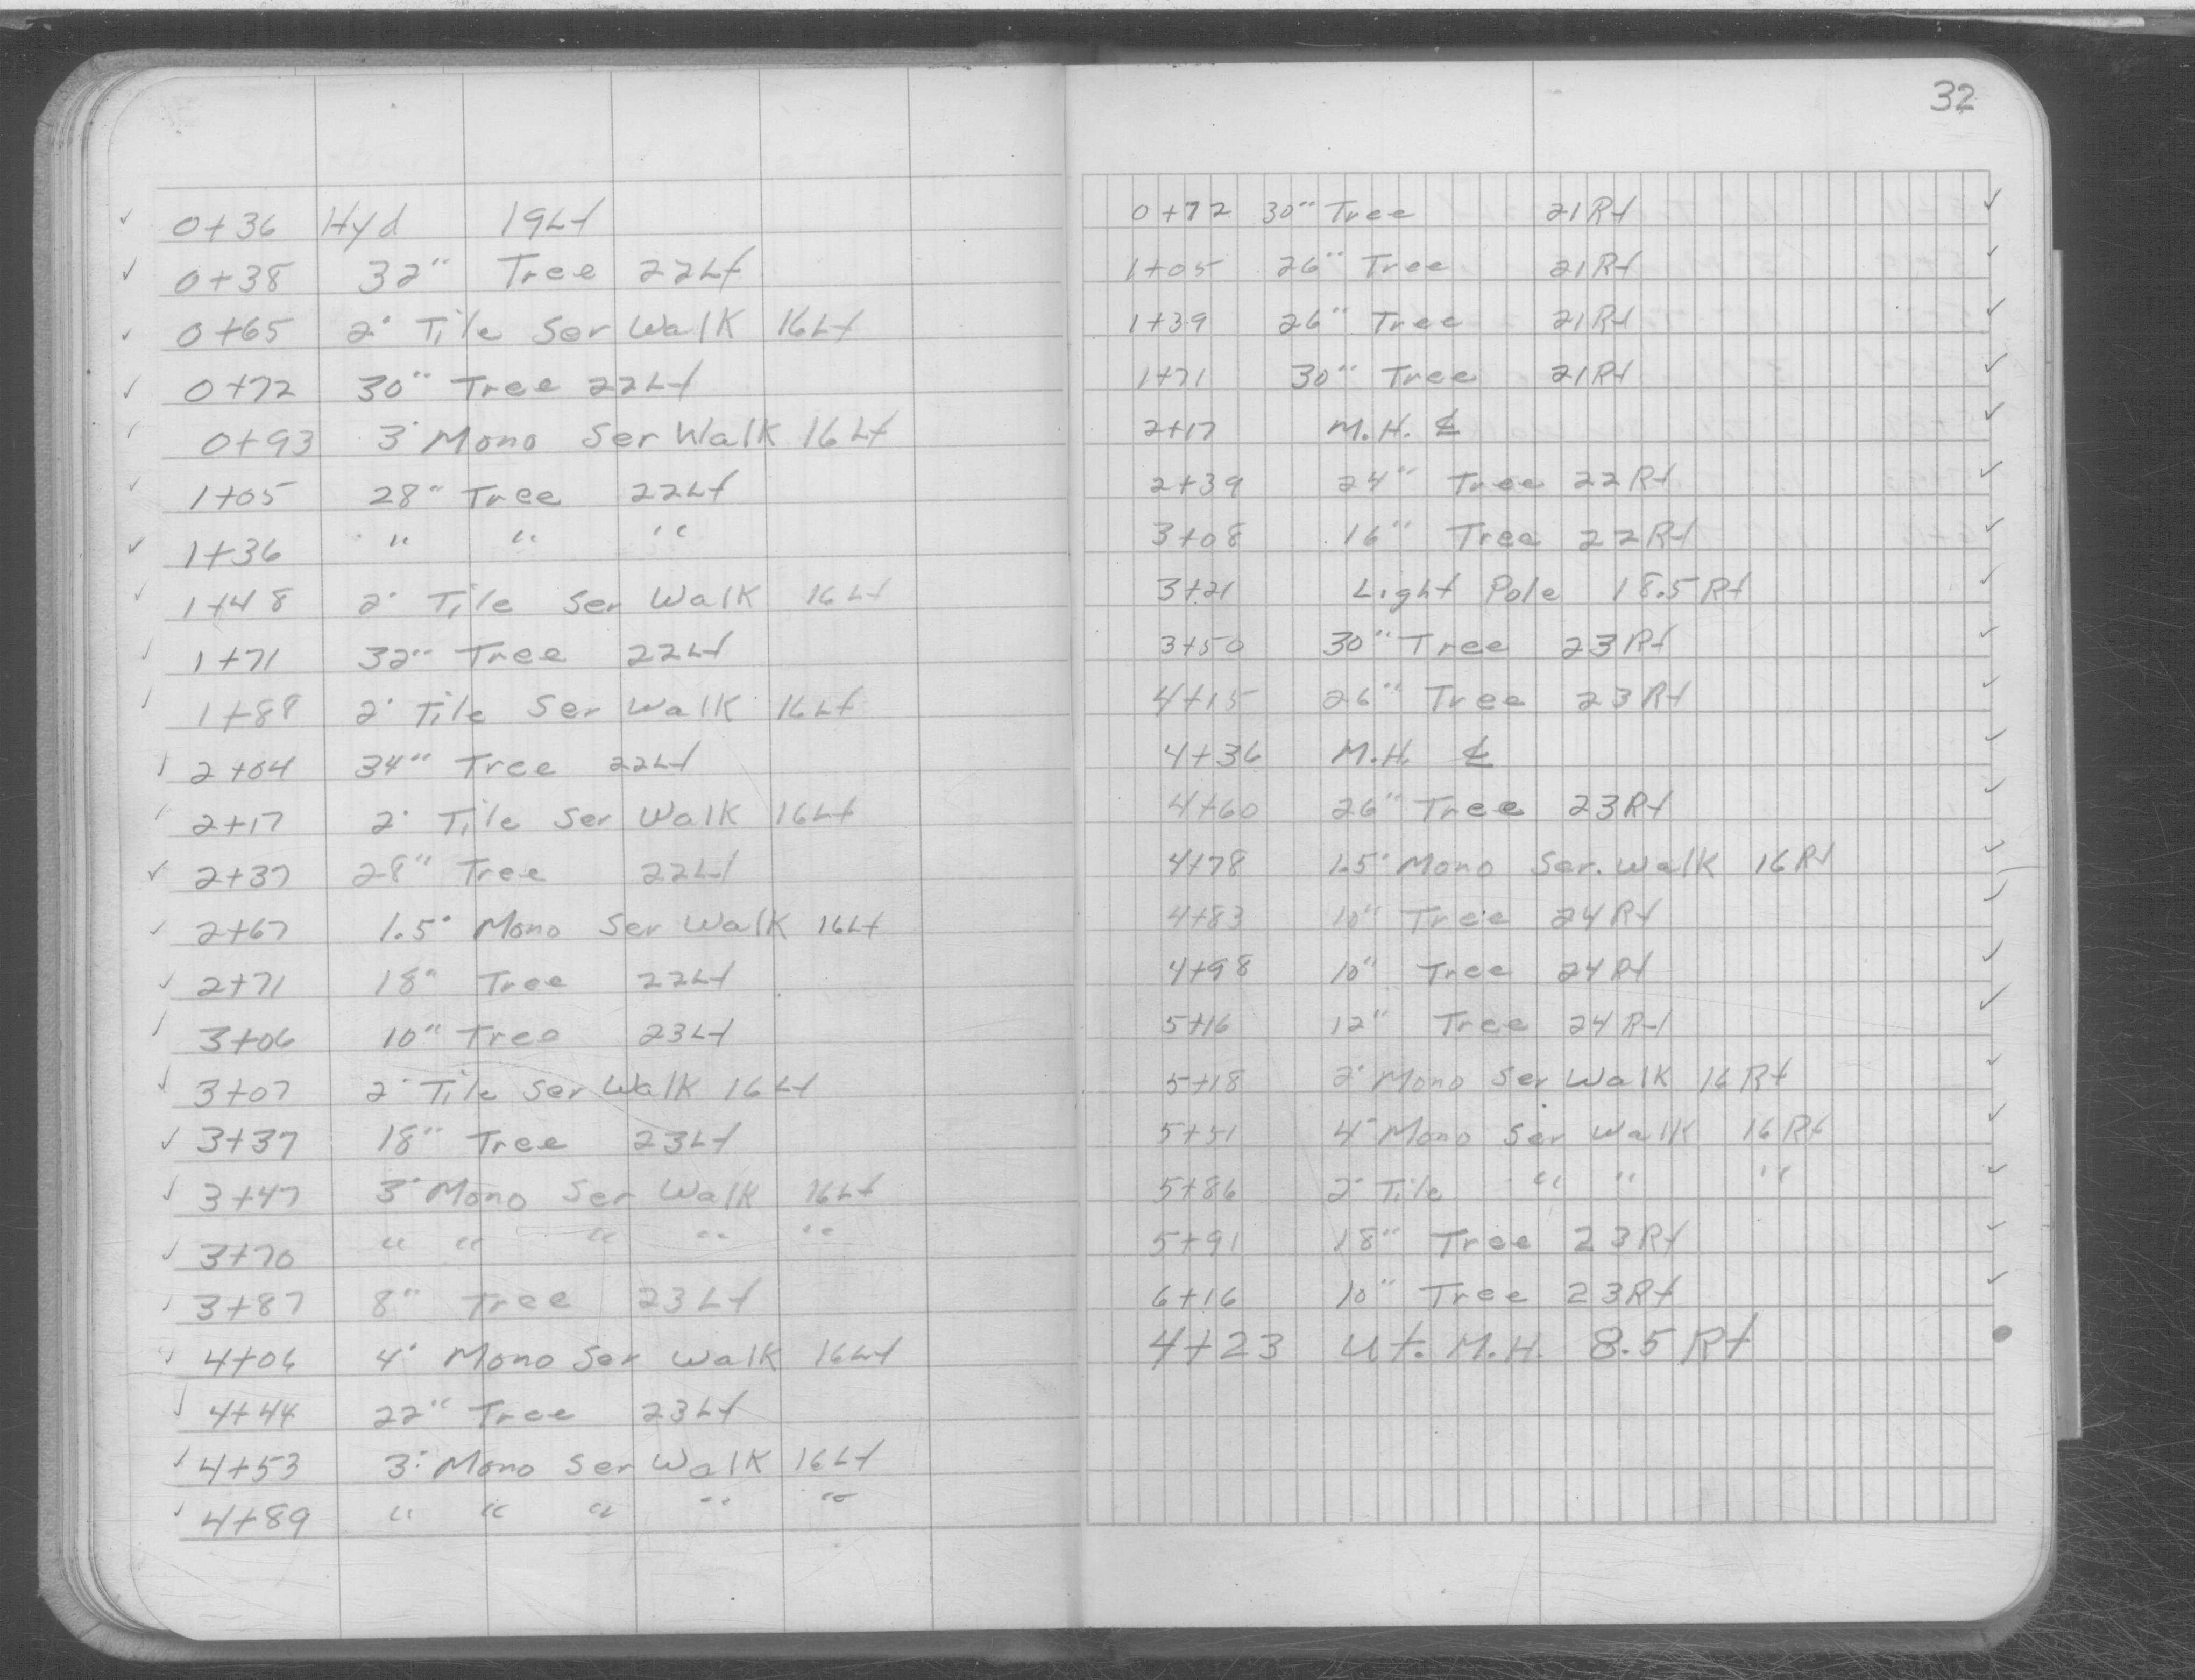 32
✓ 0+36 Hyd 19Lt
✓ 0+38 32" Tree 22Lt
✓ 0+65 2' Tile Ser Walk 16Lt
✓ 0+72 30" Tree 22Lt
✓ 0+93 3' Mono Ser Walk 16Lt
✓ 1+05 28" Tree 22Lt
✓ 1+36 " " "
✓ 1+48 2' Tile Ser Walk 16Lt
✓ 1+71 32" Tree 22Lt
✓ 1+89 2' Tile Ser Walk 16Lt
✓ 2+04 34" Tree 22Lt
✓ 2+17 2' Tile Ser Walk 16Lt
✓ 2+37 28" Tree 22Lt
✓ 2+67 1.5' Mono Ser Walk 16Lt
✓ 2+71 18" Tree 22Lt
✓ 3+06 10" Tree 23Lt
✓ 3+07 2' Tile Ser Walk 16Lt
✓ 3+37 18" Tree 23Lt
✓ 3+47 3' Mono Ser Walk 16Lt
✓ 3+70 " " " " "
✓ 3+87 8" Tree 23Lt
✓ 4+06 4' Mono Ser Walk 16Lt
✓ 4+44 22" Tree 23Lt
✓ 4+53 3' Mono Ser Walk 16Lt
✓ 4+89 " " " " "
0+72 30" Tree 21Rt ✓
1+05 26" Tree 21Rt ✓
1+39 26" Tree 21Rt ✓
1+71 30" Tree 21Rt ✓
2+17 M.H. ℄ ✓
2+39 24" Tree 22Rt ✓
3+08 16" Tree 22Rt ✓
3+21 Light Pole 18.5Rt ✓
3+50 30" Tree 23Rt ✓
4+15 26" Tree 23Rt ✓
4+36 M.H. ℄ ✓
4+60 26" Tree 23Rt ✓
4+78 1.5' Mono Ser. Walk 16Rt ✓
4+83 10" Tree 24Rt ✓
4+98 10" Tree 24Rt ✓
5+16 12" Tree 24Rt ✓
5+18 2' Mono Ser Walk 16Rt ✓
5+51 4' Mono Ser Walk 16Rt ✓
5+86 2' Tile " " " ✓
5+91 18" Tree 23Rt ✓
6+16 10" Tree 23Rt ✓
4+23 Ut. M.H. 8.5Rt